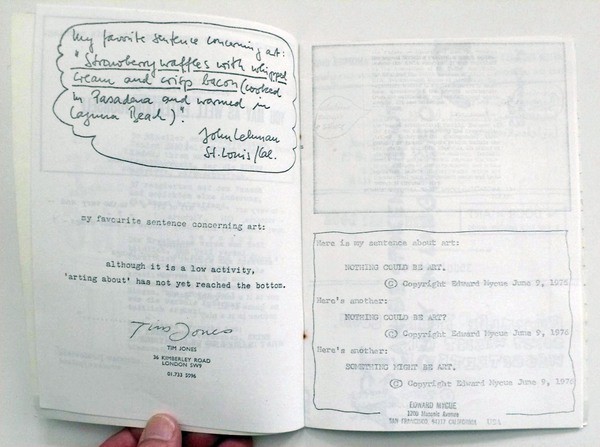 My favorite sentence concerning art:
"Strawberry waffles with whipped
cream and crisp bacon (cooked
in Pasadena and warmed in
Laguna Beach)".
John Lehman
St. Louis/Cal.
my favourite sentence concerning art:
although it is a low activity,
'arting about' has not yet reached the bottom.
Tim Jones
TIM JONES
36 KIMBERLEY ROAD
LONDON SW9
01.733 2096
Here is my sentence about art:
NOTHING COULD BE ART.
© Copyright Edward Mycue June 9, 1976
Here's another:
NOTHING COULD BE ART?
© Copyright Edward Mycue June 9, 1976
Here's another:
SOMETHING MIGHT BE ART.
© Copyright Edward Mycue June 9, 1976
EDWARD MYCUE
Masonic Avenue
SAN FRANCISCO 94117 CALIFORNIA USA